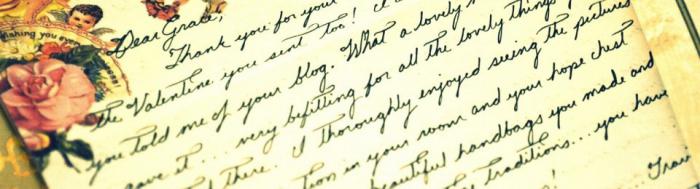 Wishing you every
Dear Grace,
Thank you for your
the Valentine you sent too! I
you told me of your blog. What a lovely
gave it... very befitting for all the lovely things
there. I thoroughly enjoyed seeing the pictures
in your room and your hope chest
beautiful handbags you made and
traditions... you have